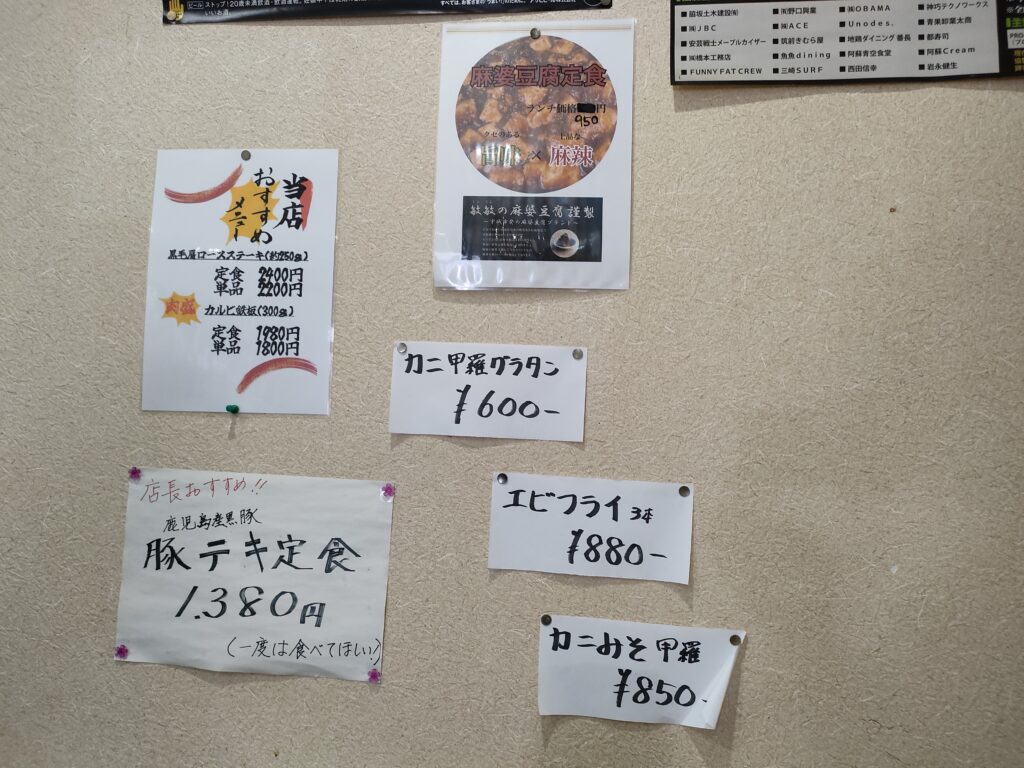 ストップ!20歳未満飲酒・飲酒運転。
いいお酒
脇坂土木建設㈲
㈱JBC
安芸戦士メープルカイザー
㈱橋本工務店
FUNNY FAT CREW
㈲野口興業
㈱ACE
筑前きむら屋
魚魚dining
三崎SURF
㈱OBAMA
Unodes.
地鶏ダイニング 番長
阿蘇青空食堂
西田信幸
神巧テクノワークス
青果卸業太商
都寿司
阿蘇Cream
岩永健生
麻婆豆腐定食
ランチ価格 円
950
クセのある 上品な
× 麻辣
敏敏の麻婆豆腐謹製
当店
おすすめ
メニュー
黒毛屋ロースステーキ(約250g)
定食 2400円
単品 2200円
肉盛 カルビ鉄板(300g)
定食 1980円
単品 1800円
カニ甲羅グラタン
¥600-
店長おすすめ!!
鹿児島産黒豚
豚テキ定食
1.380円
(一度は食べてほしい!)
エビフライ 3本
¥880-
カニみそ甲羅
¥850-